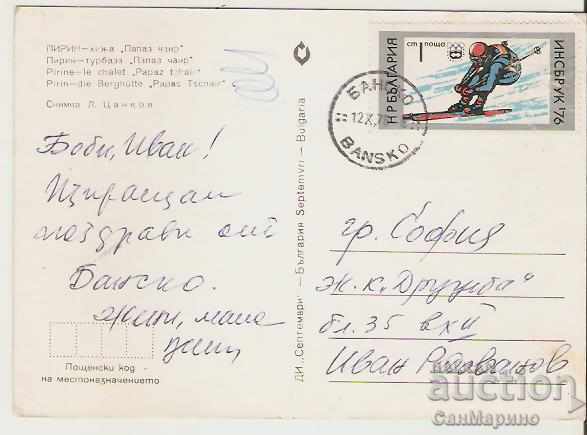 ПИРИН—хижа „Папаз чаир"
Пирин—турбаза „Папаз чаир"
Pirine—le chalet "Papaz tchair"
Pirin—die Berghütte „Papas Tschair"
Снимка Л. Цанков
Боби, Иван!
Изпращам
поздрави от
Банско.
Жени, мама
Пощенски код
на местоназначението
ДИ „Септември" — България Septemvri — Bulgaria
ст 1 поща
НР БЪЛГАРИЯ
ИНСБРУК '76
БАНСКО
12.X.7
BANSKO
гр. София
ж.к. „Дружба"
бл. 35 вх II
Иван
auction
СанМарино